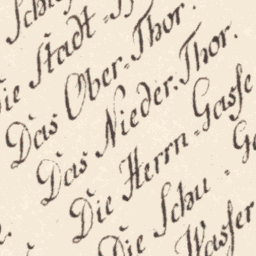 Die Stadt
Das Ober-Thor.
Das Nieder-Thor.
Die Herrn-Gasse
Die Schu-
Wasser